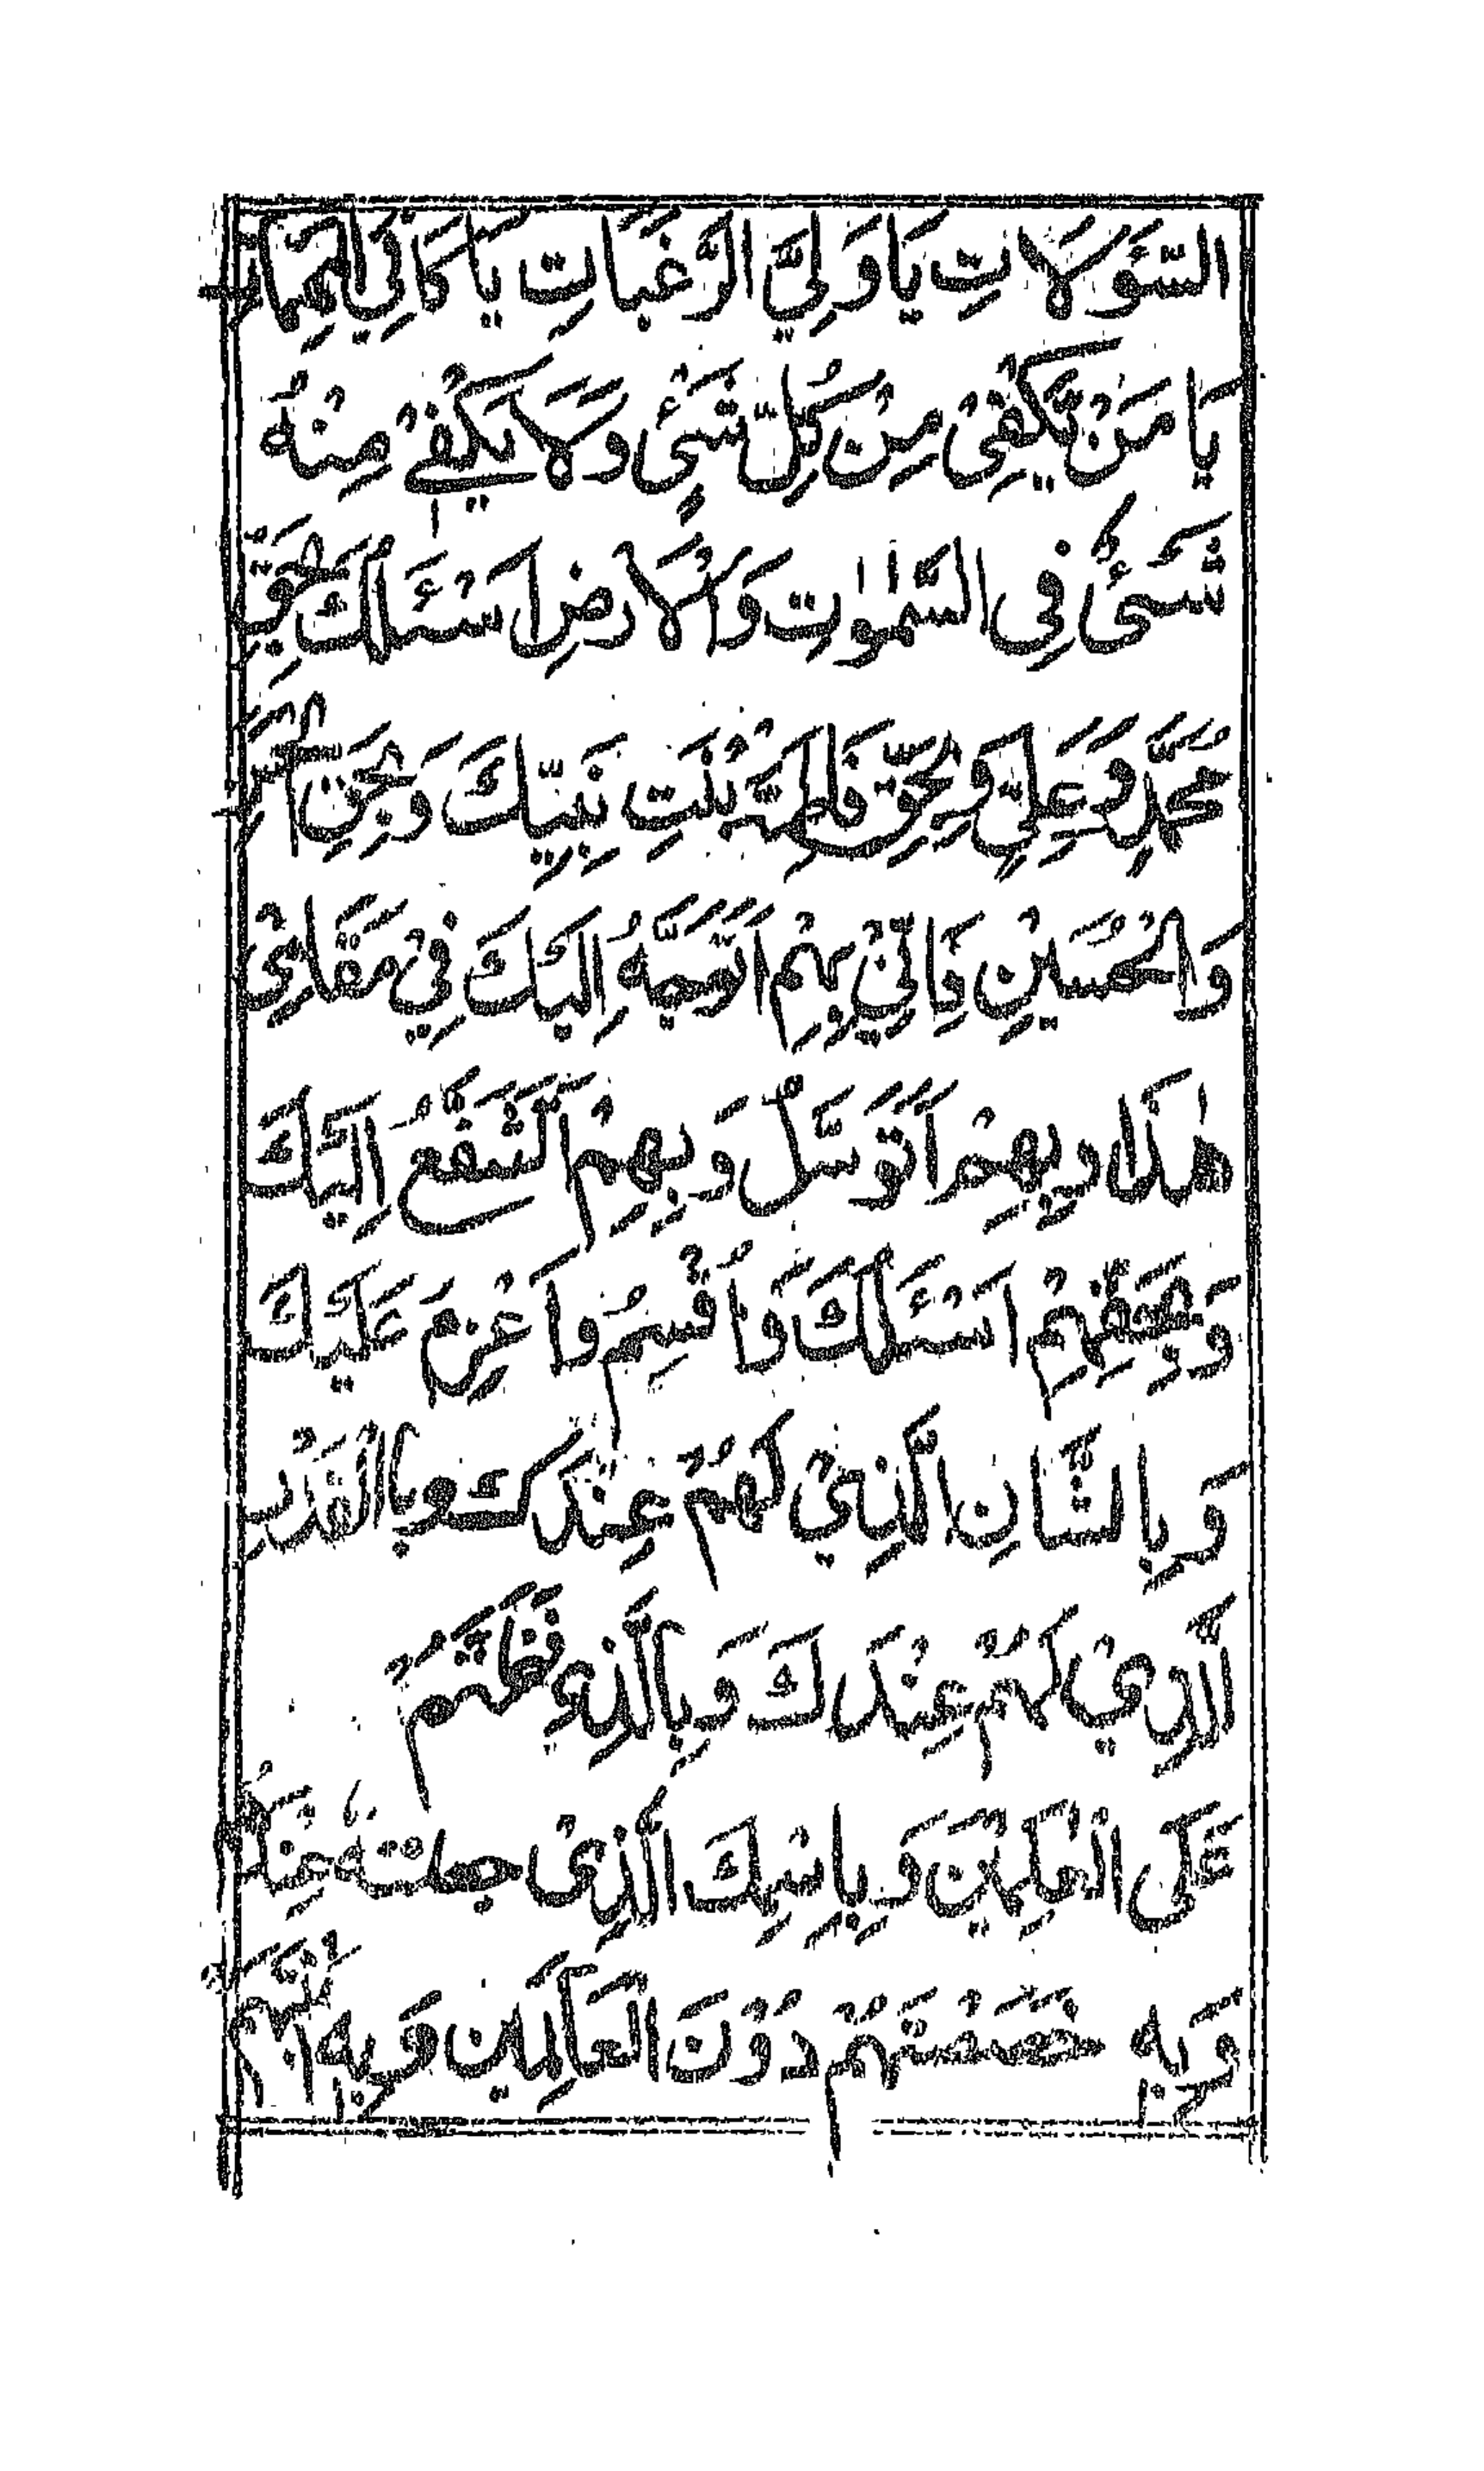 السُّؤَلَاتِ يَا وَلِيَّ الرَّغَبَاتِ يَا كَافِيَ الْمُهِمَّاتِ
يَا مَنْ يَّكْفِىْ مِنْ كُلِّ شَىْءٍ وَلَا يَكْفِىْ مِنْهُ
شَىْءٌ فِى السَّمٰوٰتِ وَالْاَرْضِ اَسْئَلُكَ بِحَقِّ
مُحَمَّدٍ وَّعَلِيٍّ وَبِحَقِّ فَاطِمَةَ بِنْتِ نَبِيِّكَ وَبِحَقِّ الْحَسَنِ
وَالْحُسَيْنِ فَاِنِّيْ بِهِمْ اَتَوَجَّهُ اِلَيْكَ فِيْ مَقَامِيْ
هٰذَا وَبِهِمْ اَتَوَسَّلُ وَبِهِمْ اَتَشَفَّعُ اِلَيْكَ
وَبِحَقِّهِمْ اَسْئَلُكَ وَاُقْسِمُ وَاَعْزِمُ عَلَيْكَ
وَبِالشَّانِ الَّذِيْ لَهُمْ عِنْدَكَ وَبِالْقَدْرِ
الَّذِيْ لَهُمْ عِنْدَكَ وَبِالَّذِىْ فَضَّلْتَهُمْ
عَلَى الْعٰلَمِيْنَ وَبِاسْمِكَ الَّذِىْ جَعَلْتَهٗ عِنْدَهُمْ
وَبِهٖ خَصَصْتَهُمْ دُوْنَ الْعَالَمِيْنَ وَبِهٖ